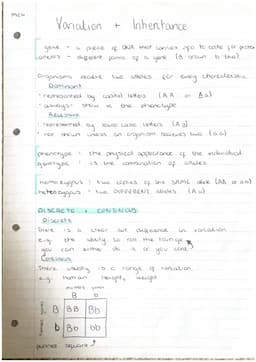 Variation + Inheritance
gene - a piece of DNA that carries info to code for protein
alleles - different forms of a gene (B brown b blue)
Organisms receive two alleles for every characteristic
Dominant
• represented by capital letters (AA or Aa)
• always show in the phenotype
Recessive
• represented by lower case letters (Aa)
• not shown unless an organism receives two (aa)
phenotype : the physical appearance of the individual
genotype : is the combination of alleles
homozygous : two copies of the SAME allele (AA or aa)
heterozygous : two DIFFERENT alleles (Aa)
DISCRETE + CONTINOUS
Discrete
there is a clear cut difference in variation
e.g. the ability to roll the tongue
you can either do it or you can't
Continous
There usually is a range of variation
e.g. human height, weight
B b
B BB Bb
b Bb bb
punnet square